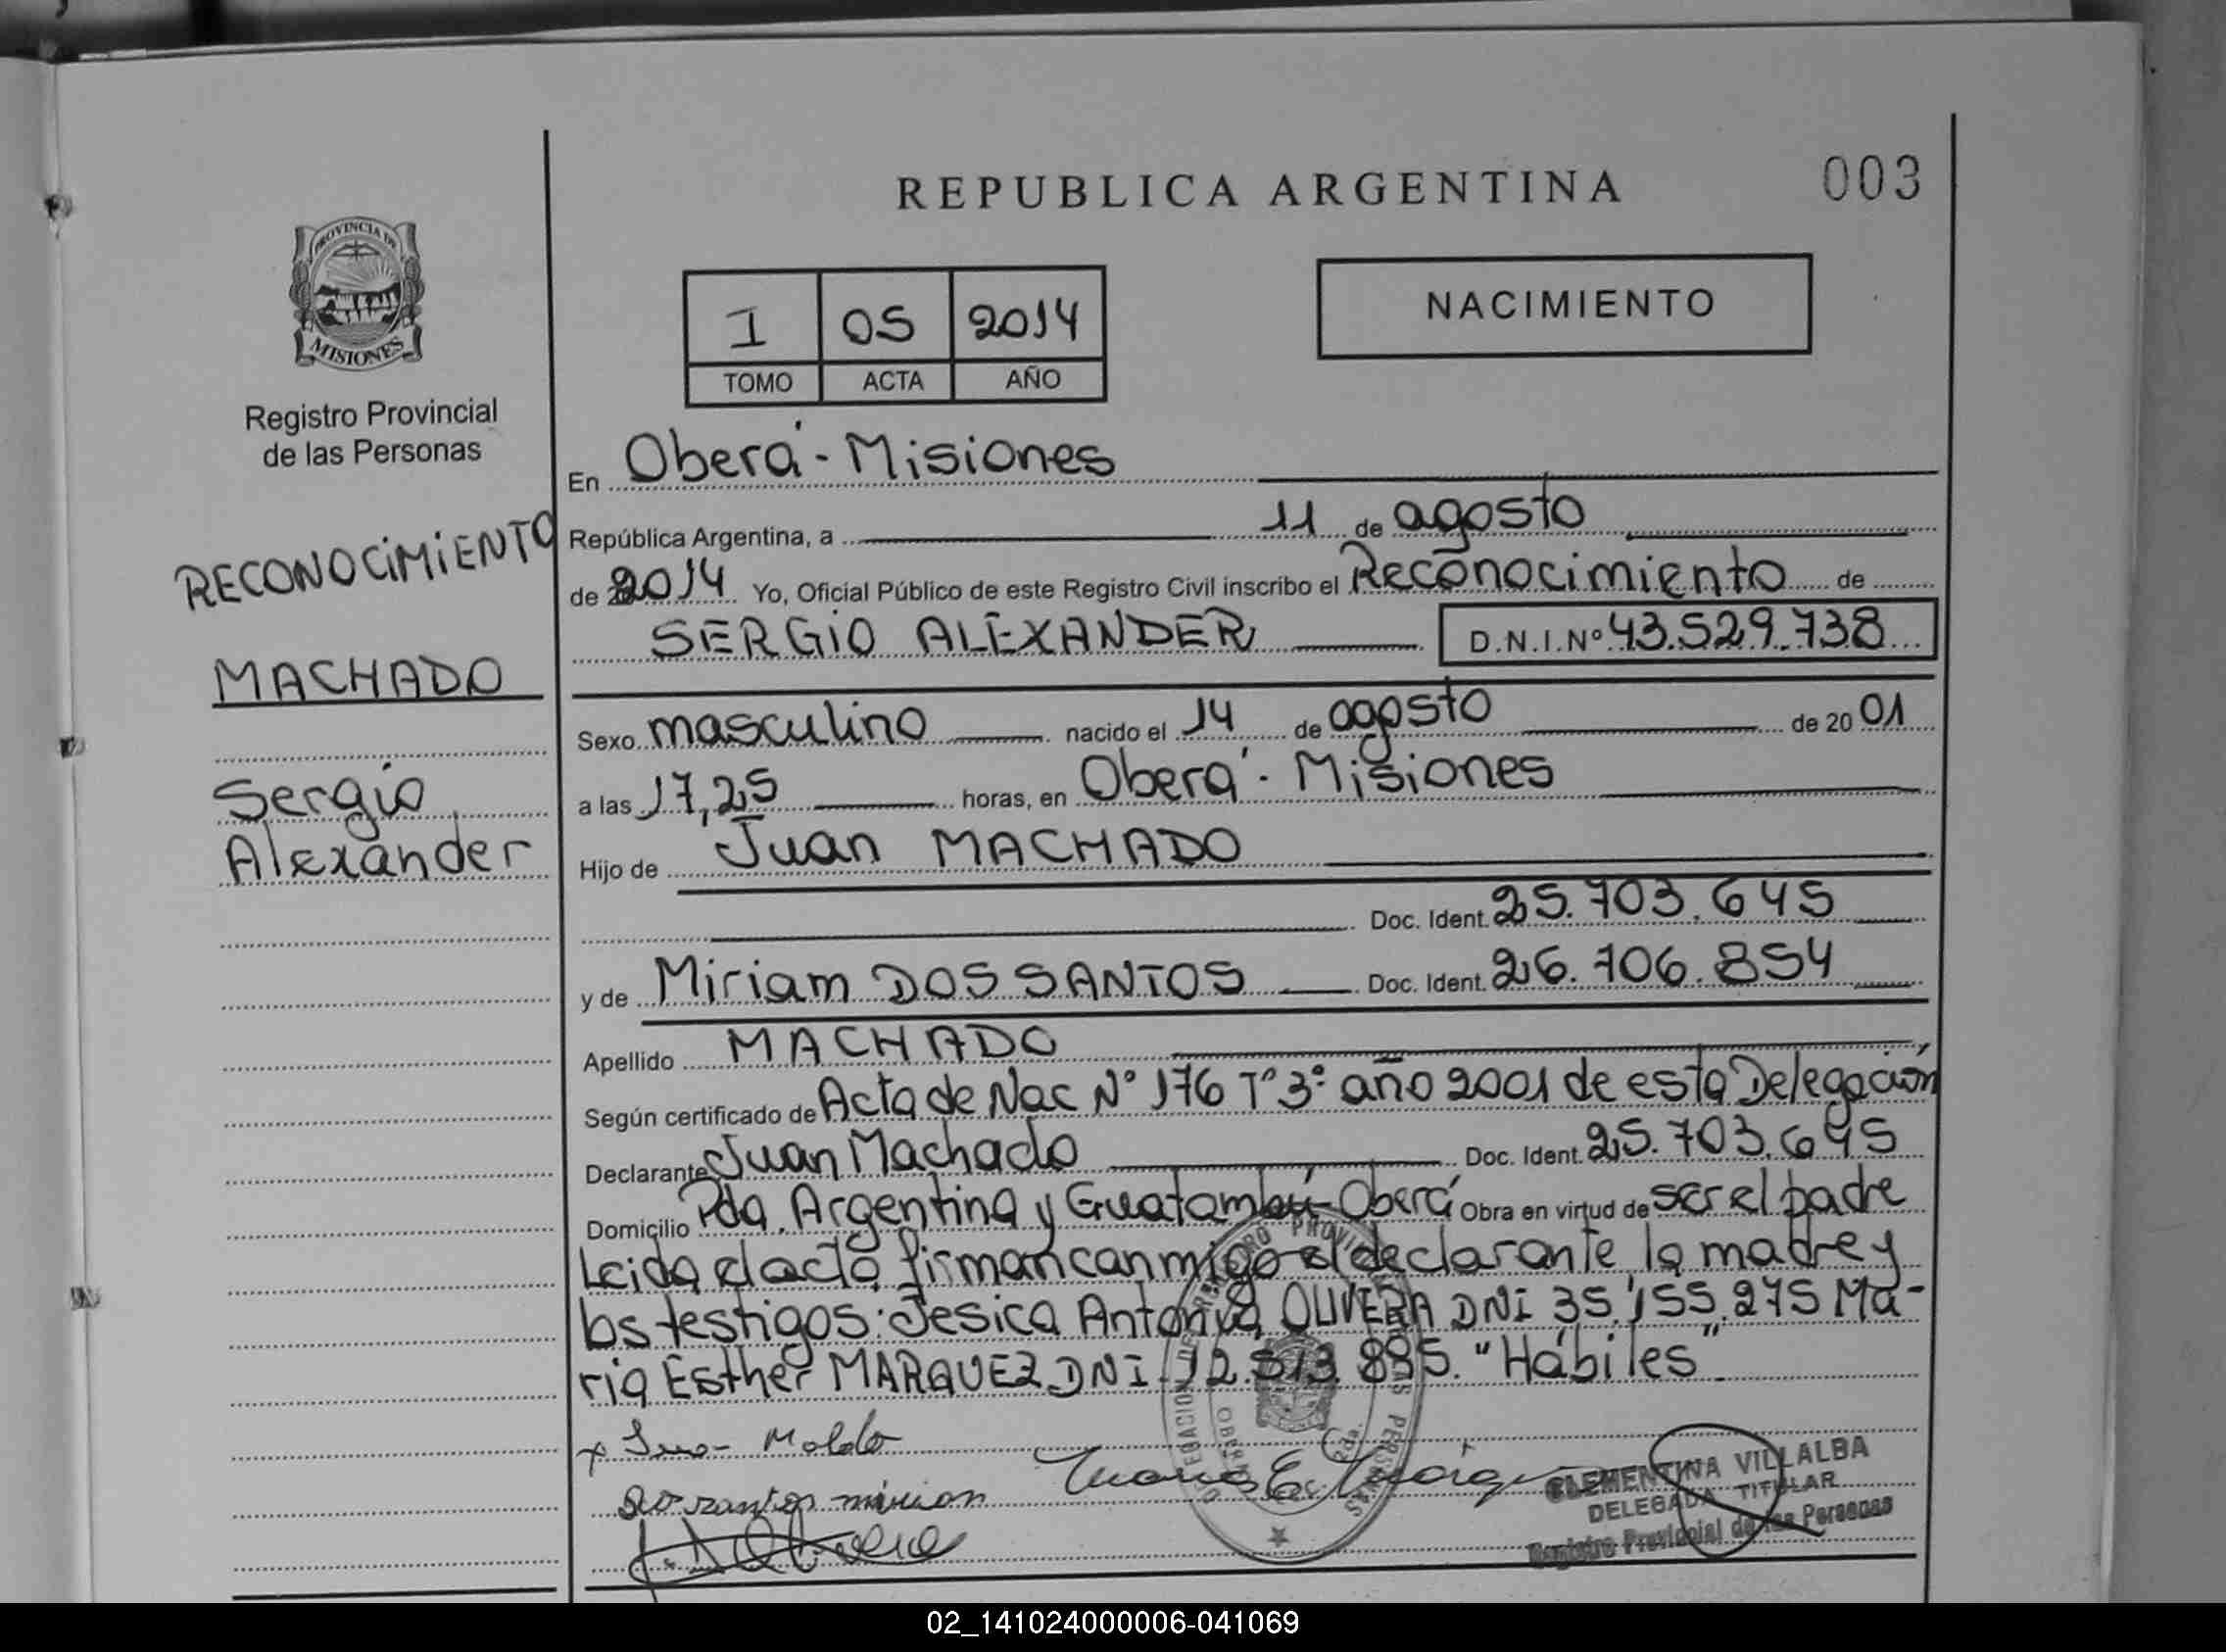 REPUBLICA ARGENTINA
003
PROVINCIA DE
MISIONES
Registro Provincial
de las Personas
RECONOCIMIENTO
MACHADO
Sergio
Alexander
I 05 2014
TOMO ACTA AÑO
NACIMIENTO
En Oberá - Misiones
República Argentina, a 11 de agosto
de 2014 Yo, Oficial Público de este Registro Civil inscribo el Reconocimiento de
SERGIO ALEXANDER D.N.I.Nº 43.529.738
Sexo masculino nacido el 14 de agosto de 2001
a las 17,25 horas, en Oberá - Misiones
Hijo de Juan MACHADO
Doc. Ident. 25.703.645
y de Miriam DOS SANTOS Doc. Ident. 26.706.854
Apellido MACHADO
Según certificado de Acta de Nac Nº 176 Tº 3º año 2001 de esta Delegación
Declarante Juan Machado Doc. Ident. 25.703.645
Domicilio Pda. Argentina y Guatambú - Oberá Obra en virtud de ser el padre
Leida el acta firman conmigo el declarante la madre y
los testigos: Jesica Antonia OLIVERA DNI 35.155.275 Ma-
ria Esther MARQUEZ DNI 12.513.895. "Hábiles"
dos santos mirian
Maria E. Márquez
CLEMENTINA VILLALBA
DELEGADA TITULAR
Registro Provincial de las Personas
02_141024000006-041069